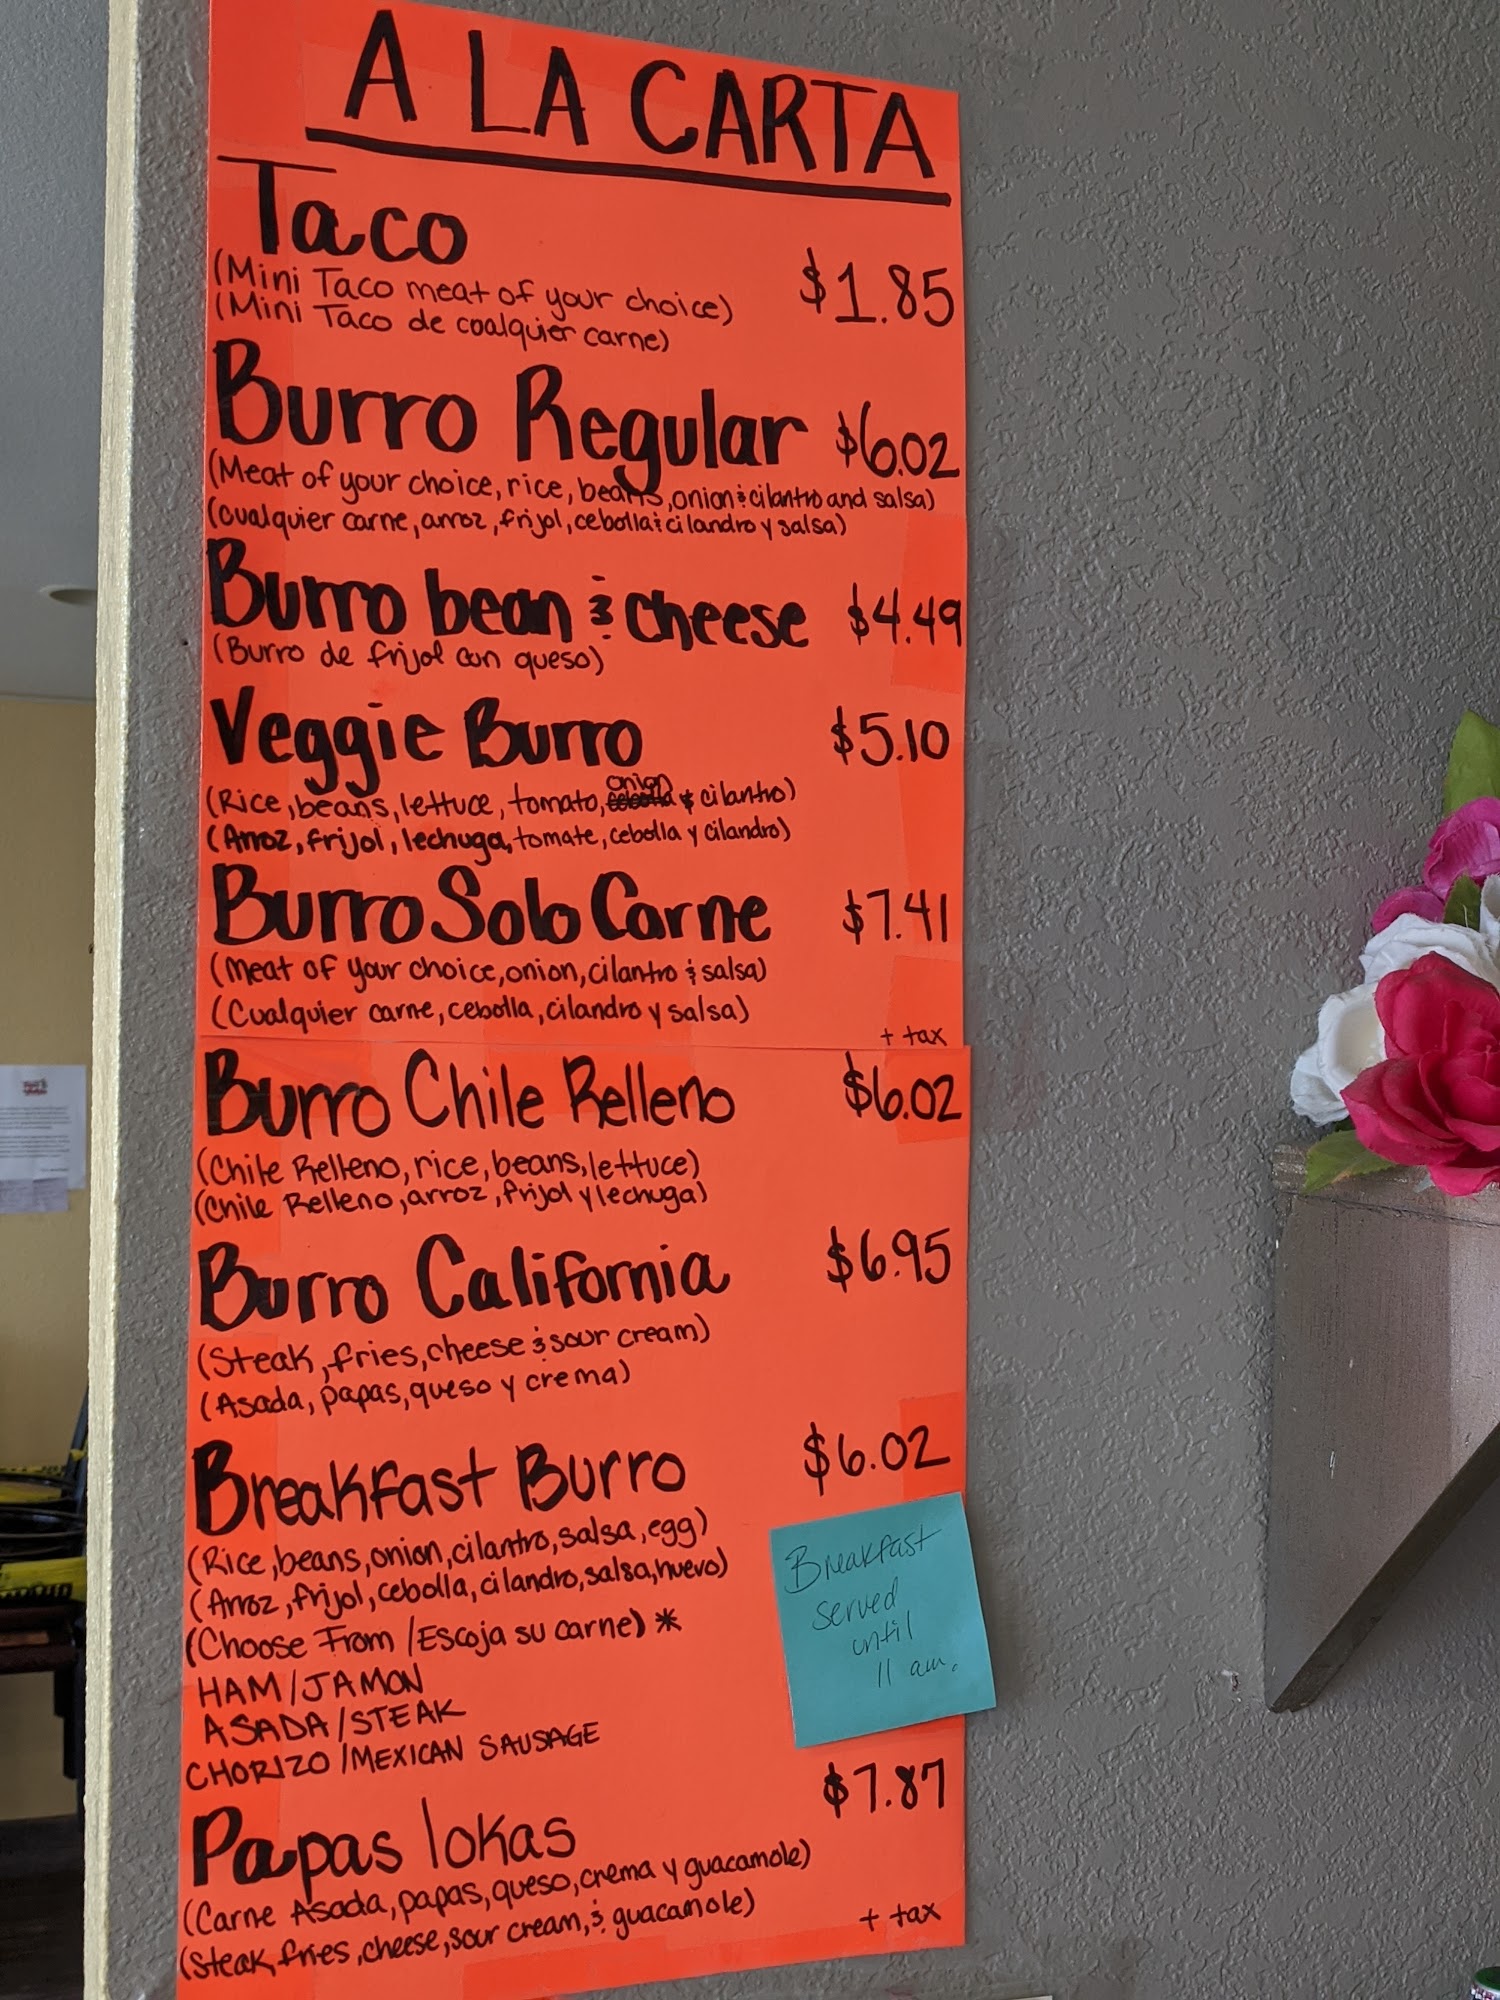 A LA CARTA
Taco $1.85
(Mini Taco meat of your choice)
(Mini Taco de coalquier carne)
Burro Regular $6.02
(Meat of your choice, rice, beans, onion & cilantro and salsa)
(Cualquier carne, arroz, frijol, cebolla & cilandro y salsa)
Burro bean & cheese $4.49
(Burro de frijol con queso)
Veggie Burro $5.10
(Rice, beans, lettuce, tomato, onion & cilantro)
(Arroz, frijol, lechuga, tomate, cebolla y cilandro)
Burro Solo Carne $7.41
(Meat of your choice, onion, cilantro & salsa)
(Cualquier carne, cebolla, cilandro y salsa)
+ tax
Burro Chile Relleno $6.02
(Chile Relleno, rice, beans, lettuce)
(Chile Relleno, arroz, frijol y lechuga)
Burro California $6.95
(Steak, fries, cheese & sour cream)
(Asada, papas, queso y crema)
Breakfast Burro $6.02
(Rice, beans, onion, cilantro, salsa, egg)
(Arroz, frijol, cebolla, cilandro, salsa, huevo)
(Choose From / Escoja su carne) *
HAM/JAMON
ASADA/STEAK
CHORIZO/MEXICAN SAUSAGE
Breakfast
served
until
11 am.
Papas lokas $7.87
(Carne Asada, papas, queso, crema y guacamole)
(Steak, fries, cheese, sour cream, & guacamole)
+ tax